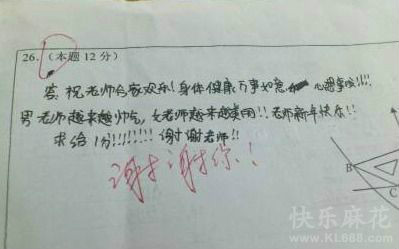 26.(本题12分)
答:祝老师合家欢乐!身体健康万事如意 心想事成!!!!
男老师越来越帅气,女老师越来越美丽!!老师新年快乐!!
求给1分!!!!!!!!谢谢老师!!
谢谢你!!
B
C
快乐麻花
WWW.KL688.COM